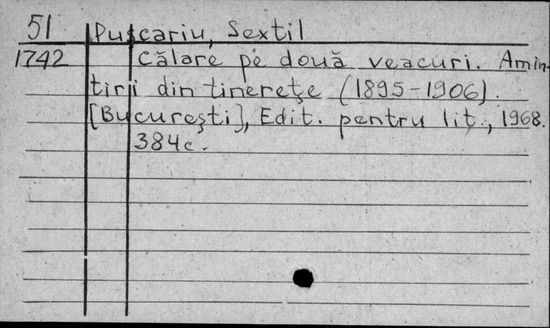 51 Pușcariu, Sextil
1742 Călare pe două veacuri. Amin-
tiri din tinereţe (1895-1906).
[Bucureşti], Edit. pentru lit., 1968.
384c.